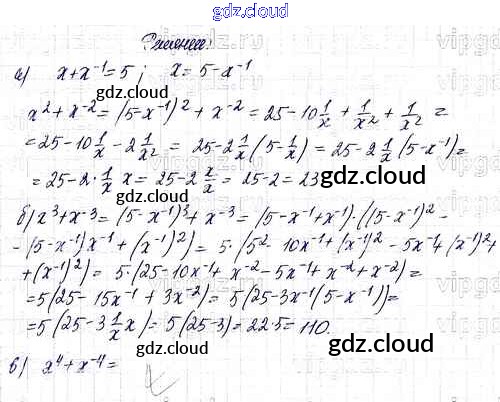 gdz.cloud
Решение.
а) x+x⁻¹=5; x=5-x⁻¹
x²+x⁻²=(5-x⁻¹)²+x⁻²=25-10 1/x + 1/x² + 1/x² =
gdz.cloud gdz.cloud
=25-10 1/x - 2 1/x² = 25-2 1/x (5- 1/x)= 25-2 1/x (5-x⁻¹)=
=25-2· 1/x x=25-2 x/x =25-2=23
gdz.cloud
б) x³+x⁻³=(5-x⁻¹)³+x⁻³=(5-x⁻¹+x⁻¹)·((5-x⁻¹)²-
gdz.cloud
-(5-x⁻¹)x⁻¹+(x⁻¹)²)= 5·(5²-10x⁻¹+(x⁻¹)²-5x⁻¹+(x⁻¹)²+
+(x⁻¹)²)= 5·(25-10x⁻¹+x⁻²-5x⁻¹+x⁻²+x⁻²)=
=5(25-15x⁻¹+3x⁻²)= 5(25-3x⁻¹(5-x⁻¹))=
=5(25-3 1/x x)=5(25-3)=22·5=110.
gdz.cloud gdz.cloud
в) x⁴+x⁻⁴=